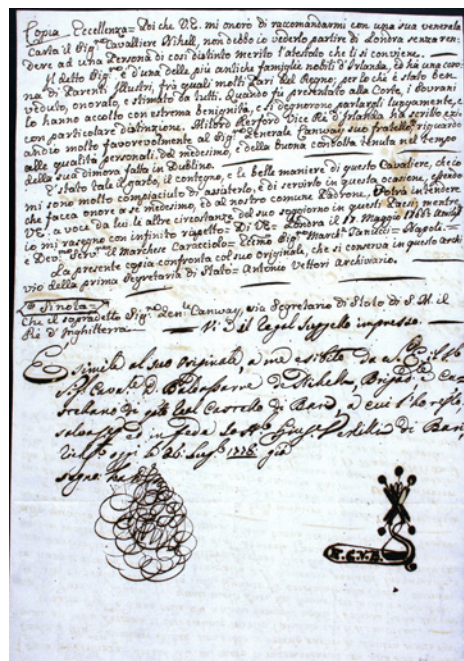 Copia Eccellenza= Poi che V.E. mi onorò di raccomandarmi con una sua venerata
Carta il Sigr. Cavalliere Nihell, non debbo io vederlo partire di Londra senza ren-
dere ad una Persona di così distinto merito l'atestato che li si conviene.
Il detto Sigr. è d'una delle più antiche famiglie nobili d'Irlanda, ed hà una coro-
na di Parenti Illustri, frà quali molti Pari del Regno; per lo che è stato ben
veduto, onorato, e stimato da tutti. Quando fù presentato alla Corte, i Sovrani
lo hanno accolto con estrema benignità, e si degnorono parlargli lungamente, e
con particolare distinzione. Milord Herford Vice Rè d'Irlanda hà scritto ezi-
andio molto favorevolmente al Sigr. Generale Canway suo fratello, riguardo
alle qualità personali del medesimo, e della buona condotta tenuta nel tempo
della sua dimora fatta in Dublino.
È stato tale il garbo, il contegno, e le belle maniere di questo Cavaliere, che io
mi sono molto compiaciuto di assisterlo, e di servirlo in questa ocasione, essendo
che facea onore a se medesimo, ed al nostro comune Padrone. Potrà intendere
V.E. a voce da lui le altre circostanze del suo soggiorno in questi Paesi, mentre
io mi rasegno con infinito rispetto= Di V.E.= Londra il 17. Maggio 1766.
e Devmo. Servr. il Marchese Caracciolo= Ecmo Sigr. March. Tanucci= Napoli.=
La presente copia confronta col suo originale, che si conserva in questo archi
vio della prima Segretaria di Stato= Antonio Vettori Archivario.
Si nota=
Che il sopradetto Sigr. Genle Canway, era Segretario di Stato di S.M. il
Rè d'Inghilterra
Vi è il regal suggello impresso.
È simile al suo originale, a me esibito da
Cavale D. de Nihell, Brigadre e Ca-
stellano di Real Castello di Bari, a cui
salvo ed in fede Io di Bari,
oggi li 26 1776